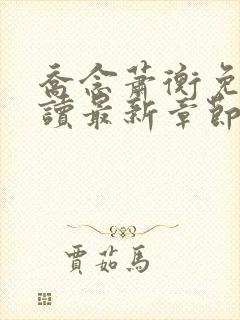 喬念蕭衡免
讀最新章節
賈茹馬